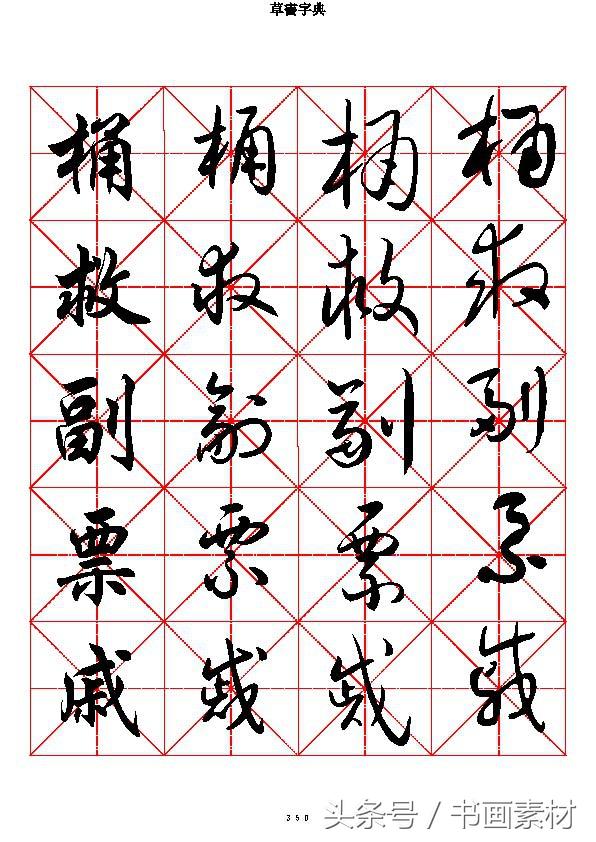 草書字典
桶桶桶桶
救救救救
副副副副
票票票票
戚戚戚戚
350
头条号 / 书画素材